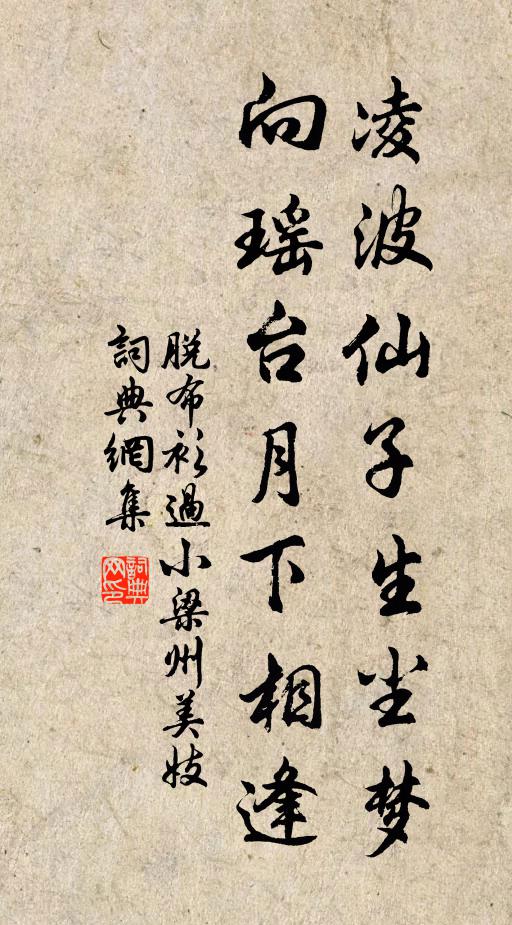 凌波仙子生尘梦
向瑶台月下相逢
脱布衫過小梁州美妓
詞典網集
詞典
网印